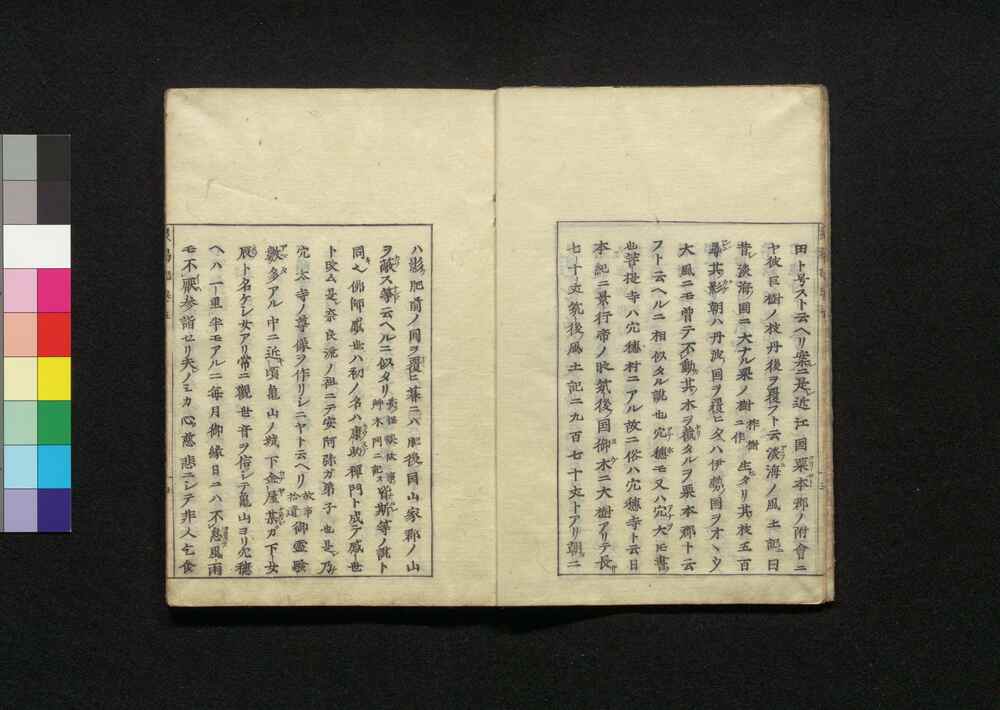 田ト号スト云ヘリ案ニ是近江国栗本郡ノ附會ニ
ヤ彼巨樹ノ枝丹後ヲ覆フト云淡海ノ風土記曰
昔淡海国ニ大ナル栗ノ樹 柞樹ニ作 生タリ其枝五百
尋其影朝ハ丹波国ヲ覆ヒ夕ハ伊勢国ヲオヽヘリ
大風ニモ曽テ不動其木ヲ截タルヲ栗本郡ト云
フト云ヘルニ相似タル説也穴穂モ又ハ穴大ㇳモ書
也菩提寺ハ穴穂村ニアル故ニ俗ハ穴穂寺ト云日
本紀ニ景行帝ノ時筑後国御木ニ大樹アリテ長
七十丈筑後風土記ニ九百七十丈トアリ朝ニ
ハ影肥前ノ国ヲ覆ヒ暮ニハ肥後国山家郡ノ山
ヲ蔽ス等云ヘルニ似タリ 草木門ニ記ス 皆斯等ノ説ト
同シ佛師感世ハ初ノ名ハ康助禅門ト成テ感世
ト改ム是奈良流ノ祖ニテ安阿弥ガ弟子也是乃
穴太寺ノ尊像ヲ作リシニヤト云ヘリ 故事拾遺 御霊験
数多アル中ニ近頃亀山ノ城下金屋某ガ下女
辰ト名ケシ女アリ常ニ觀世音ヲ信シテ亀山ヨリ穴穂
ヘハ一里半モアルニ毎月御縁日ニハ不怠風雨
モ不厭参詣セリ夫ノミカ心慈悲ニシテ非人乞食